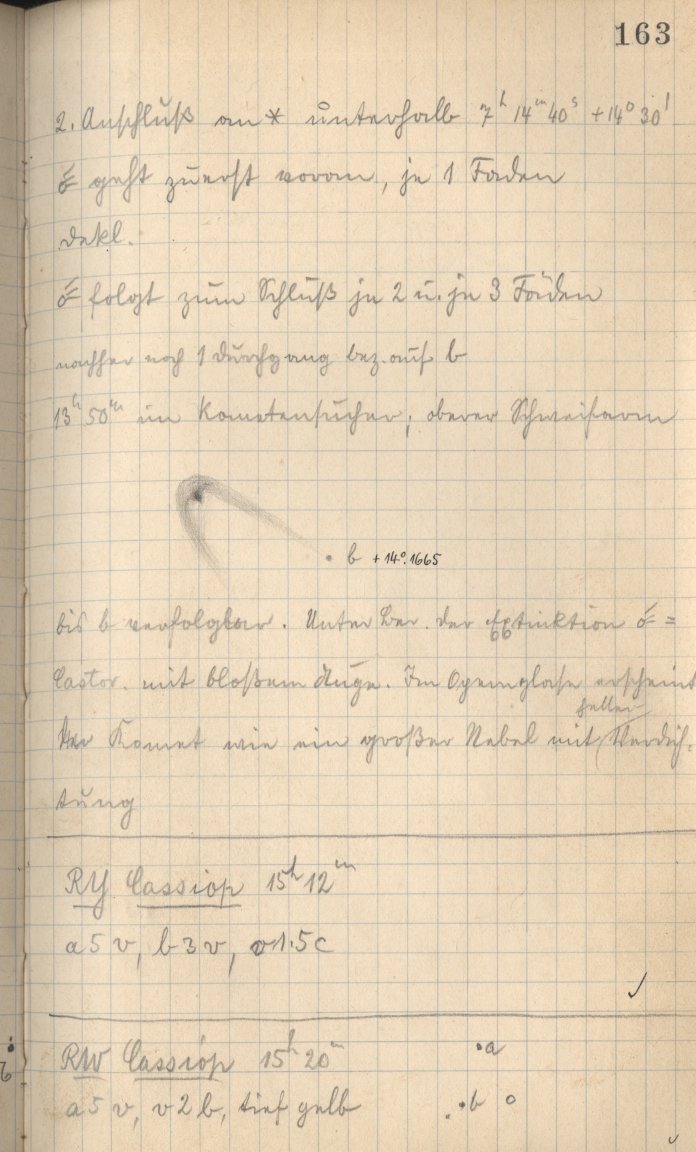 163
2. Anschluß am * unterhalb 7h 14m 40s +14° 30'
☄ geht zuerst voran, je 1 Faden
dekl.
☄ folgt zum Schluß je 2 u. je 3 Fäden
nachher noch 1 Durchgang bez. auf b
13h 50m im Kometensucher, oberer Schweifarm
b +14°.1665
bis b verfolgbar. Unter Ber. der Extinktion ☄ =
Castor. mit bloßem Auge. Im Opernglase erscheint
heller
der Komet wie ein großer Nebel mit Verdich-
tung
RY Cassiop 15h 12m
a 5 v, b 3 v, v 1.5 c
RW Cassiop 15h 20m
a
a 5 v, v 2 b, tief gelb
b